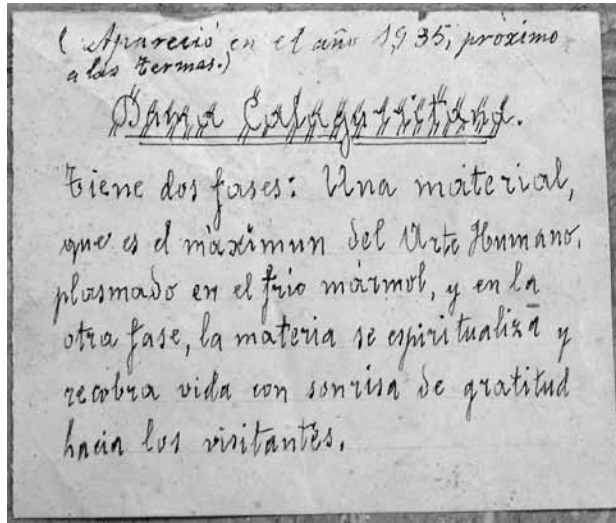 ( Apareció en el año 1,935, próximo
a las termas.)
Dama Calagurritana.
tiene dos fases: Una material,
que es el máximun del Arte Humano,
plasmado en el frío mármol, y en la
otra fase, la materia se espiritualiza y
recobra vida con sonrisa de gratitud
hacia los visitantes.